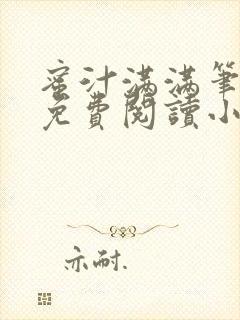 蜜汁满满筆
免費閱讀小
亦耐.